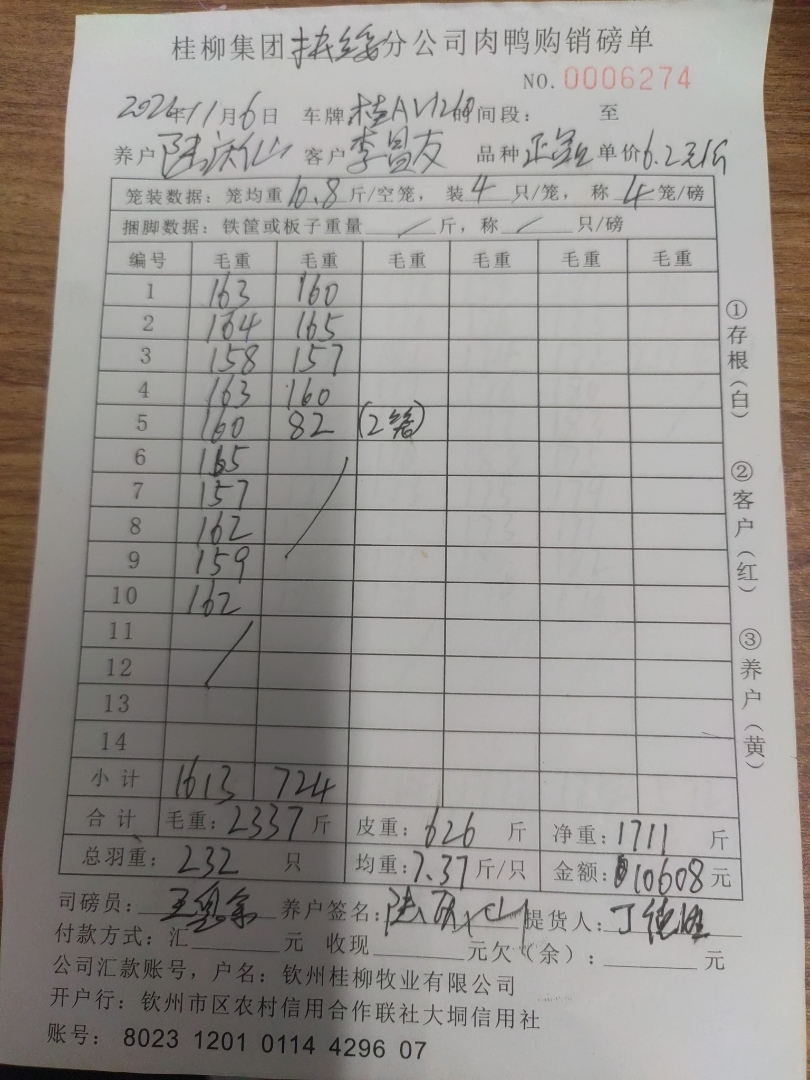 桂柳集团扶绥分公司肉鸭购销磅单
NO. 0006274
11月6日 车牌 桂A 时间段： 至
养户 陆庆仙 客户 李昌友 品种 单价 6.2元/斤
笼装数据：笼均重 10.8 斤/空笼，装 4 只/笼，称 4 笼/磅
捆脚数据：铁筐或板子重量 / 斤，称 / 只/磅
编号 毛重 毛重 毛重 毛重 毛重 毛重
1 163 160
2 164 165
3 158 157
4 163 160
5 160 82 (2笼)
6 165
7 157
8 162
9 159
10 162
11
12
13
14
小计 1613 724
合计 毛重：2337 斤 皮重：626 斤 净重：1711 斤
总羽重：232 只 均重：7.37 斤/只 金额：10608 元
司磅员： 养户签名：陆庆仙 提货人：丁
付款方式：汇 元 收现 元欠（余）： 元
公司汇款账号，户名：钦州桂柳牧业有限公司
开户行：钦州市区农村信用合作联社大垌信用社
账号： 8023 1201 0114 4296 07
①存根（白）
②客户（红）
③养户（黄）